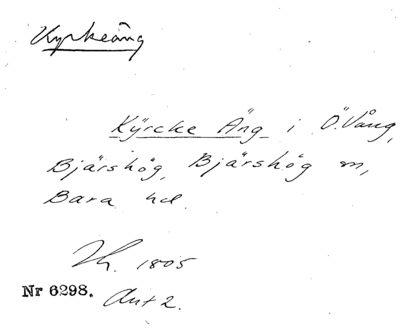 Kyrkeäng
Kÿrcke Äng i Ö. Vång,
Bjärshög, Bjärshög sn,
Bara hd.
1805
Nr 6298. Akt 2.